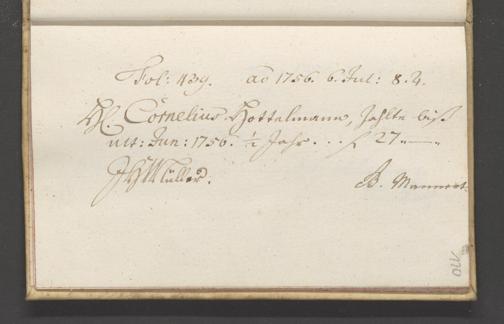 Fol: 439. ao 1756. 6. Jul: 8. 4.
H. Cornelius Hottelmann, Zahlte biß
ult: Jun: 1756. ½ Jahr . . . f 27 . —
JHMüller. B. Mannert.